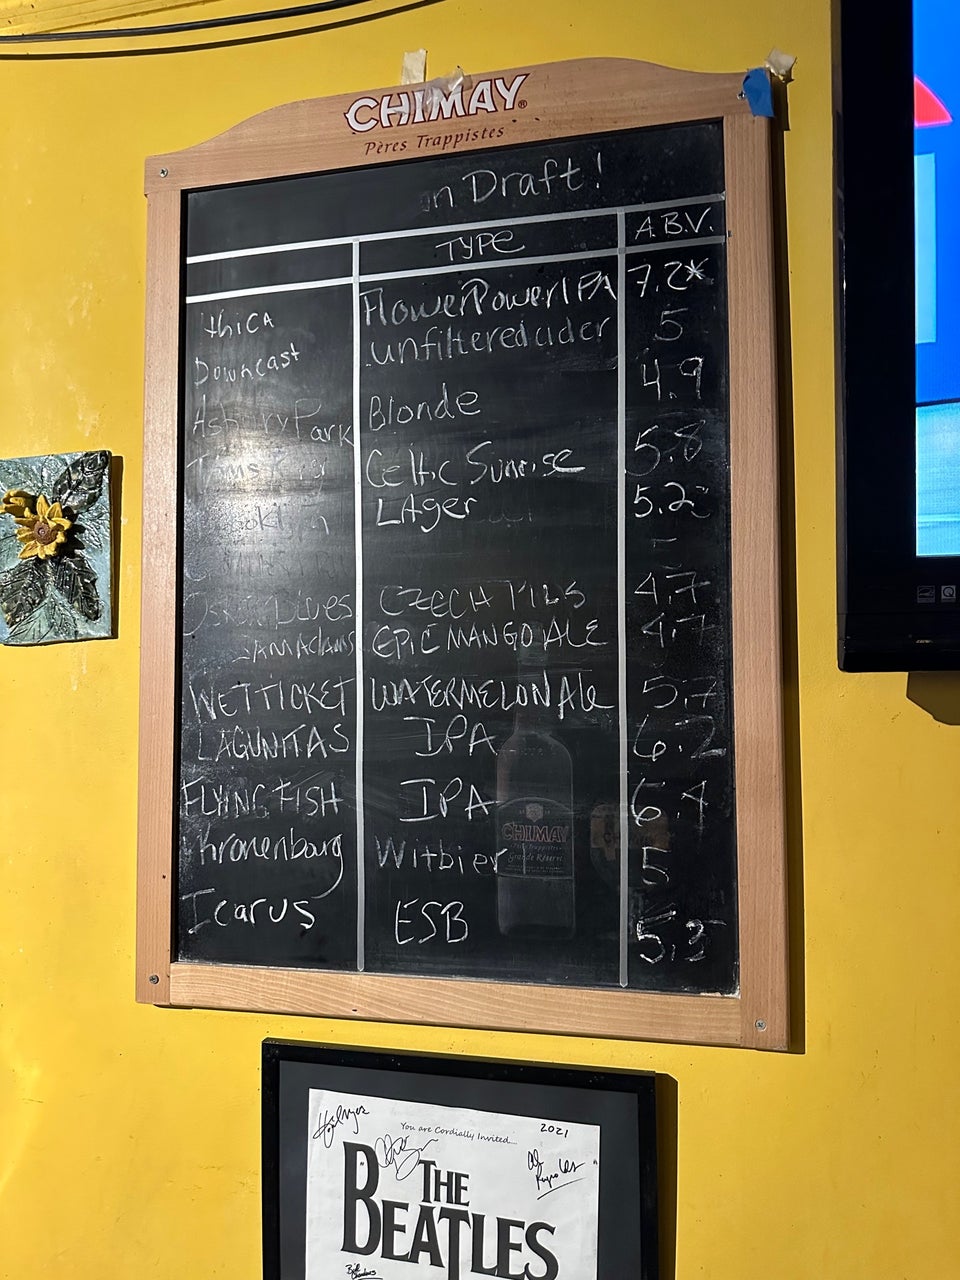 CHIMAY®
Pères Trappistes
on Draft!
TYPE A.B.V.
Ithica FlowerPowerIPA 7.2*
Downcast unfiltered cider 5
Asbury Park Blonde 4.9
Toms River Celtic Sunrise 5.8
Lager 5.2
CZECH PILS 4.7
SAMADAMS EPIC MANGO ALE 4.7
WET TICKET WATERMELON Ale 5.7
LAGUNITAS IPA 6.2
FLYING FISH IPA 6.4
Kronenbourg Witbier 5
Icarus ESB 5.3
CHIMAY
Pères Trappistes
Grande Réserve
You are Cordially Invited... 2021
THE
BEATLES